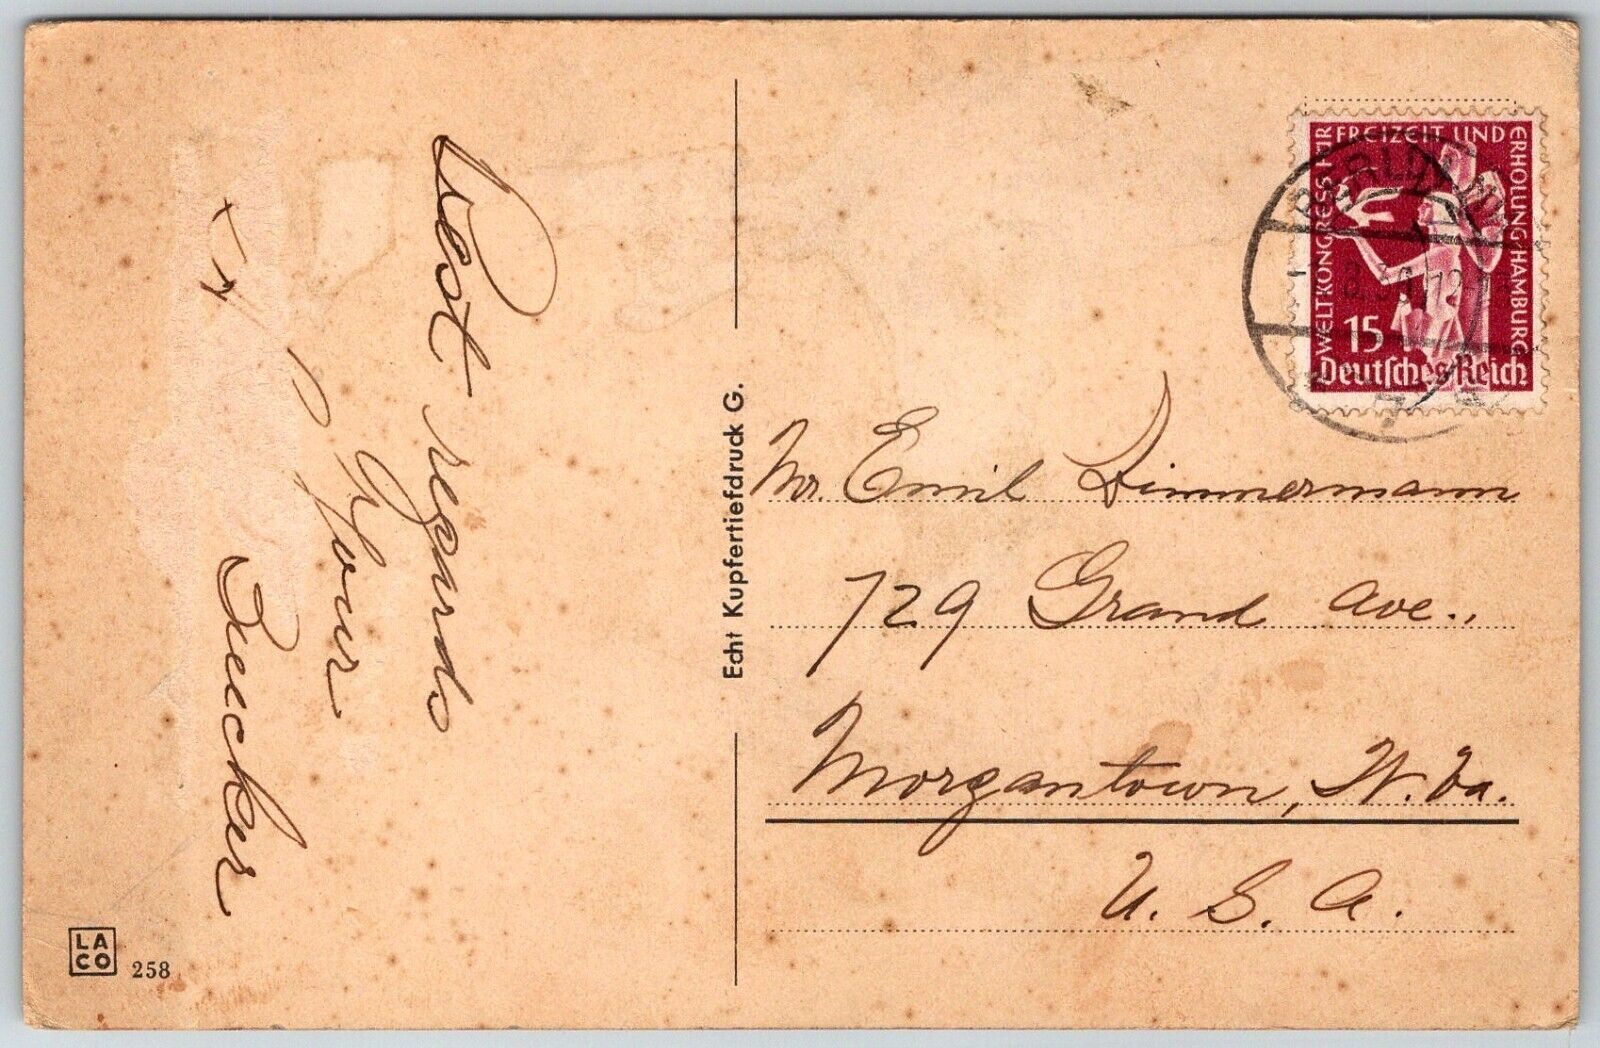 Best regards
Your
Echt Kupfertiefdruck G.
LA
CO
258
WELTKONGRESS FÜR FREIZEIT UND ERHOLUNG HAMBURG
15
Deutsches Reich
BERLIN
Mr. Emil Zimmermann
729 Grand Ave.,
Morgantown, W. Va.
U. S. A.